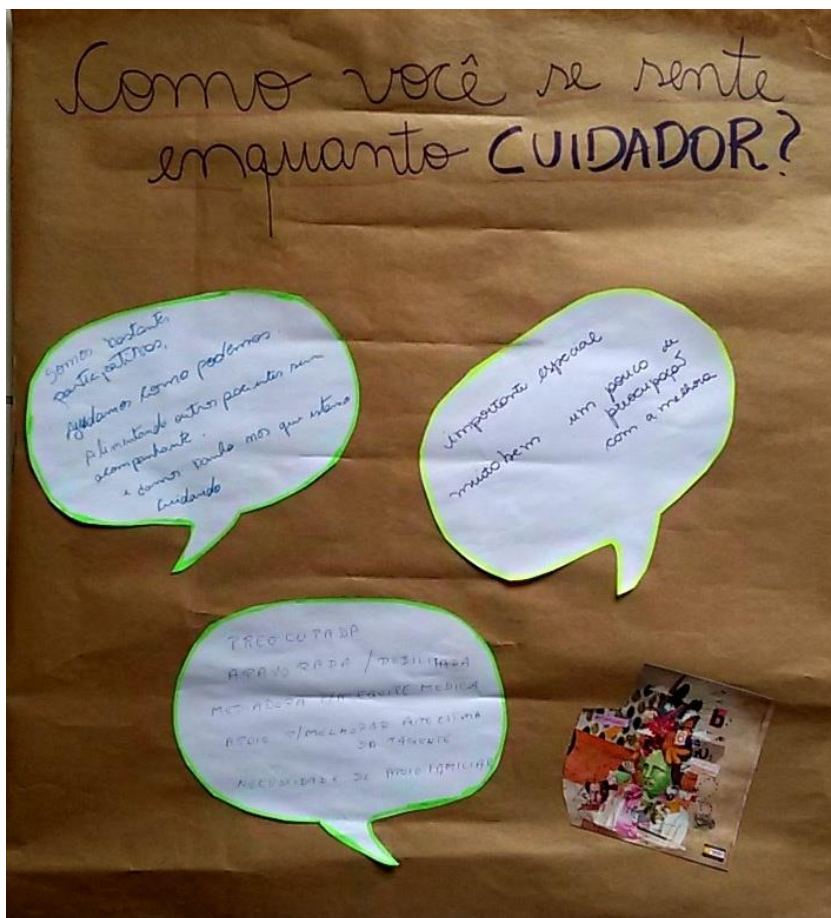 Como você se sente
enquanto CUIDADOR?
somos bastante
participativos,
Ajudamos como podemos.
Alimentando outros pacientes sem
acompanhante.
e damos banho nos que estamo
cuidando
importante especial
muito bem um pouco de
preocupação
com a melhora
PREOCUPADA
APAVORADA / DEBILITADA
MEDIADORA EQUIPE MEDICA
APOIO P/MELHORAR AUTO ESTIMA
DA PACIENTE
NECESSIDADE DE APOIO FAMILIAR